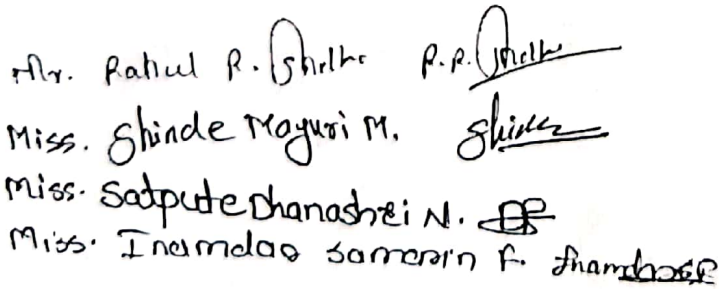 Mr. Rahul R. Shelke R.R. Shelke
Miss. Shinde Mayuri M. Shinde
Miss. Satpute Dhanashri N.
Miss. Inamdar Samrin F.